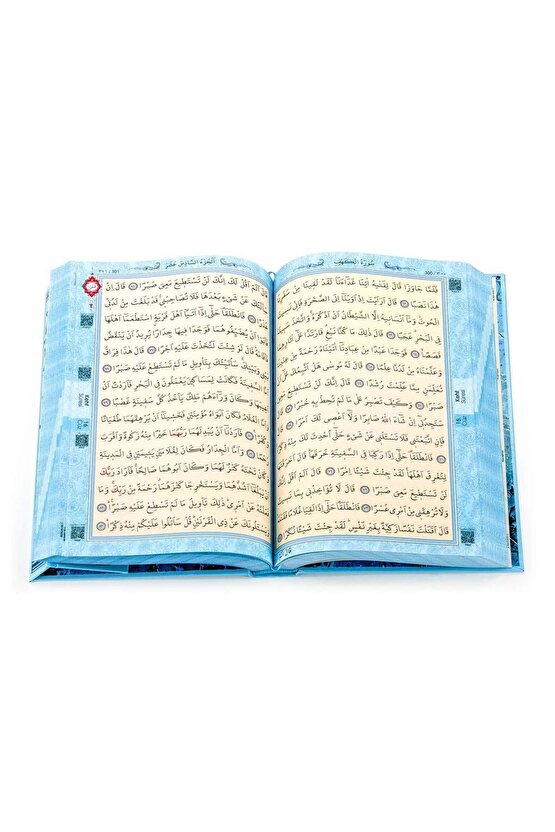 سُورَةُ الْكَهْفِ
300 / ٣٠٠
فَلَمَّا جَاوَزَا قَالَ لِفَتٰيهُ اٰتِنَا غَدَٓاءَنَا لَقَدْ لَقٖينَا مِنْ سَفَرِنَا
هٰذَا نَصَبًا قَالَ اَرَاَيْتَ اِذْ اَوَيْنَٓا اِلَى الصَّخْرَةِ فَاِنّٖي نَسٖيتُ
الْحُوتَ وَمَٓا اَنْسَانٖيهُ اِلَّا الشَّيْطَانُ اَنْ اَذْكُرَهُ وَاتَّخَذَ سَبٖيلَهُ
فِي الْبَحْرِ عَجَبًا قَالَ ذٰلِكَ مَا كُنَّا نَبْغِ فَارْتَدَّا عَلٰٓى اٰثَارِهِمَا
قَصَصًا فَوَجَدَا عَبْدًا مِنْ عِبَادِنَٓا اٰتَيْنَاهُ رَحْمَةً مِنْ عِنْدِنَا
وَعَلَّمْنَاهُ مِنْ لَدُنَّا عِلْمًا قَالَ لَهُ مُوسٰى هَلْ اَتَّبِعُكَ عَلٰٓى اَنْ
تُعَلِّمَنِ مِمَّا عُلِّمْتَ رُشْدًا قَالَ اِنَّكَ لَنْ تَسْتَطٖيعَ مَعِيَ
صَبْرًا وَكَيْفَ تَصْبِرُ عَلٰى مَا لَمْ تُحِطْ بِهٖ خُبْرًا قَالَ
سَتَجِدُنٖٓي اِنْ شَٓاءَ اللّٰهُ صَابِرًا وَلَٓا اَعْصٖي لَكَ اَمْرًا قَالَ
فَاِنِ اتَّبَعْتَنٖي فَلَا تَسْـَٔلْنٖي عَنْ شَيْءٍ حَتّٰٓى اُحْدِثَ لَكَ مِنْهُ
ذِكْرًا فَانْطَلَقَا حَتّٰٓى اِذَا رَكِبَا فِي السَّفٖينَةِ خَرَقَهَا قَالَ اَخَرَقْتَهَا
لِتُغْرِقَ اَهْلَهَا لَقَدْ جِئْتَ شَيْـًٔا اِمْرًا قَالَ اَلَمْ اَقُلْ اِنَّكَ
لَنْ تَسْتَطٖيعَ مَعِيَ صَبْرًا قَالَ لَا تُؤَاخِذْنٖي بِمَا نَسٖيتُ
وَلَا تُرْهِقْنٖي مِنْ اَمْرٖي عُسْرًا فَانْطَلَقَا حَتّٰٓى اِذَا لَقِيَا غُلَامًا فَقَتَلَهُ
قَالَ اَقَتَلْتَ نَفْسًا زَكِيَّةً بِغَيْرِ نَفْسٍ لَقَدْ جِئْتَ شَيْـًٔا نُكْرًا
Kehf
Suresi
اَلْجُزْءُ السَّادِسُ عَشَرَ
301 / ٣٠١
قَالَ اَلَمْ اَقُلْ لَكَ اِنَّكَ لَنْ تَسْتَطٖيعَ مَعِيَ صَبْرًا قَالَ اِنْ
سَاَلْتُكَ عَنْ شَيْءٍ بَعْدَهَا فَلَا تُصَاحِبْنٖي قَدْ بَلَغْتَ مِنْ لَدُنّٖي
عُذْرًا فَانْطَلَقَا حَتّٰٓى اِذَٓا اَتَيَٓا اَهْلَ قَرْيَةٍ اسْتَطْعَمَٓا اَهْلَهَا
فَاَبَوْا اَنْ يُضَيِّفُوهُمَا فَوَجَدَا فٖيهَا جِدَارًا يُرٖيدُ اَنْ يَنْقَضَّ
فَاَقَامَهُ قَالَ لَوْ شِئْتَ لَتَّخَذْتَ عَلَيْهِ اَجْرًا قَالَ هٰذَا فِرَاقُ
بَيْنٖي وَبَيْنِكَ سَاُنَبِّئُكَ بِتَأْوٖيلِ مَا لَمْ تَسْتَطِعْ عَلَيْهِ صَبْرًا
اَمَّا السَّفٖينَةُ فَكَانَتْ لِمَسَاكٖينَ يَعْمَلُونَ فِي الْبَحْرِ فَاَرَدْتُ اَنْ
اَعٖيبَهَا وَكَانَ وَرَٓاءَهُمْ مَلِكٌ يَأْخُذُ كُلَّ سَفٖينَةٍ غَصْبًا
وَاَمَّا الْغُلَامُ فَكَانَ اَبَوَاهُ مُؤْمِنَيْنِ فَخَشٖينَٓا اَنْ يُرْهِقَهُمَا طُغْيَانًا
وَكُفْرًا فَاَرَدْنَٓا اَنْ يُبْدِلَهُمَا رَبُّهُمَا خَيْرًا مِنْهُ زَكٰوةً وَاَقْرَبَ
رُحْمًا وَاَمَّا الْجِدَارُ فَكَانَ لِغُلَامَيْنِ يَتٖيمَيْنِ فِي الْمَدٖينَةِ
وَكَانَ تَحْتَهُ كَنْزٌ لَهُمَا وَكَانَ اَبُوهُمَا صَالِحًا فَاَرَادَ رَبُّكَ
اَنْ يَبْلُغَٓا اَشُدَّهُمَا وَيَسْتَخْرِجَا كَنْزَهُمَا رَحْمَةً مِنْ رَبِّكَ وَمَا
فَعَلْتُهُ عَنْ اَمْرٖي ذٰلِكَ تَأْوٖيلُ مَا لَمْ تَسْطِعْ عَلَيْهِ صَبْرًا
وَيَسْـَٔلُونَكَ عَنْ ذِي الْقَرْنَيْنِ قُلْ سَاَتْلُوا عَلَيْكُمْ مِنْهُ ذِكْرًا
Kehf
Suresi